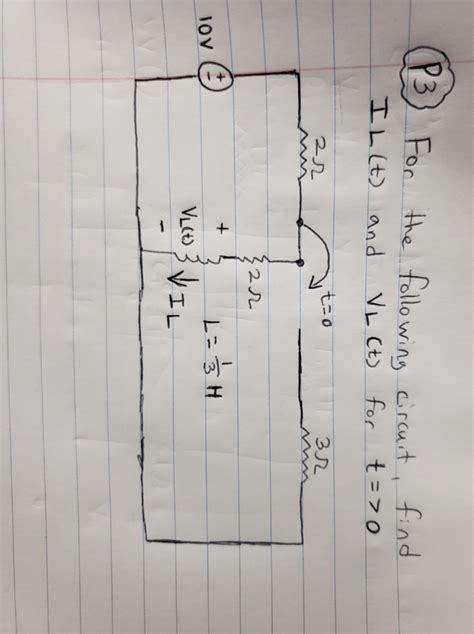 P3 For the following circuit, find
IL(t) and VL(t) for t=>0
2Ω
t=0
3Ω
10V
+
-
2Ω
+
VL(t)
-
IL
L=1/3 H